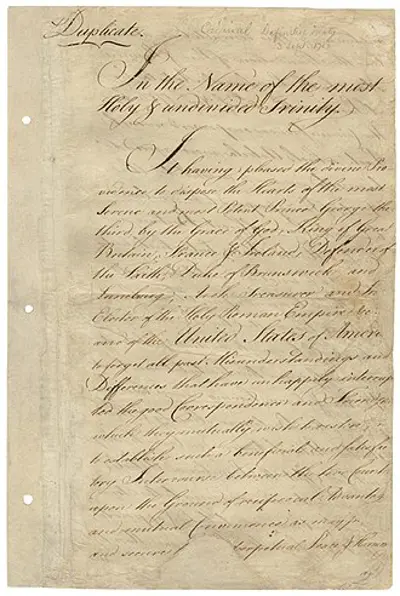 Duplicate.
Original Definitive Treaty
3 Sept. 1783
In the Name of the most
Holy & undivided Trinity.
It having pleased the divine Pro
vidence to dispose the Hearts of the most
Serene and most Potent Prince George the
third, by the Grace of God, King of Great
Britain, France & Ireland, Defender of
the Faith, Duke of Brunswick and
Lunebourg, Arch Treasurer and
Elector of the Holy Roman Empire &c
and of the United States of America
to forget all past Misunderstandings and
Differences that have unhappily interrup
ted the good Correspondence and Friendship
which they mutually wish to restore;
to establish such a beneficial and satisfac
tory Intercourse between the two Countries
upon the Ground of reciprocal Advantages
and mutual Convenience as may
and secure to Perpetual Peace &